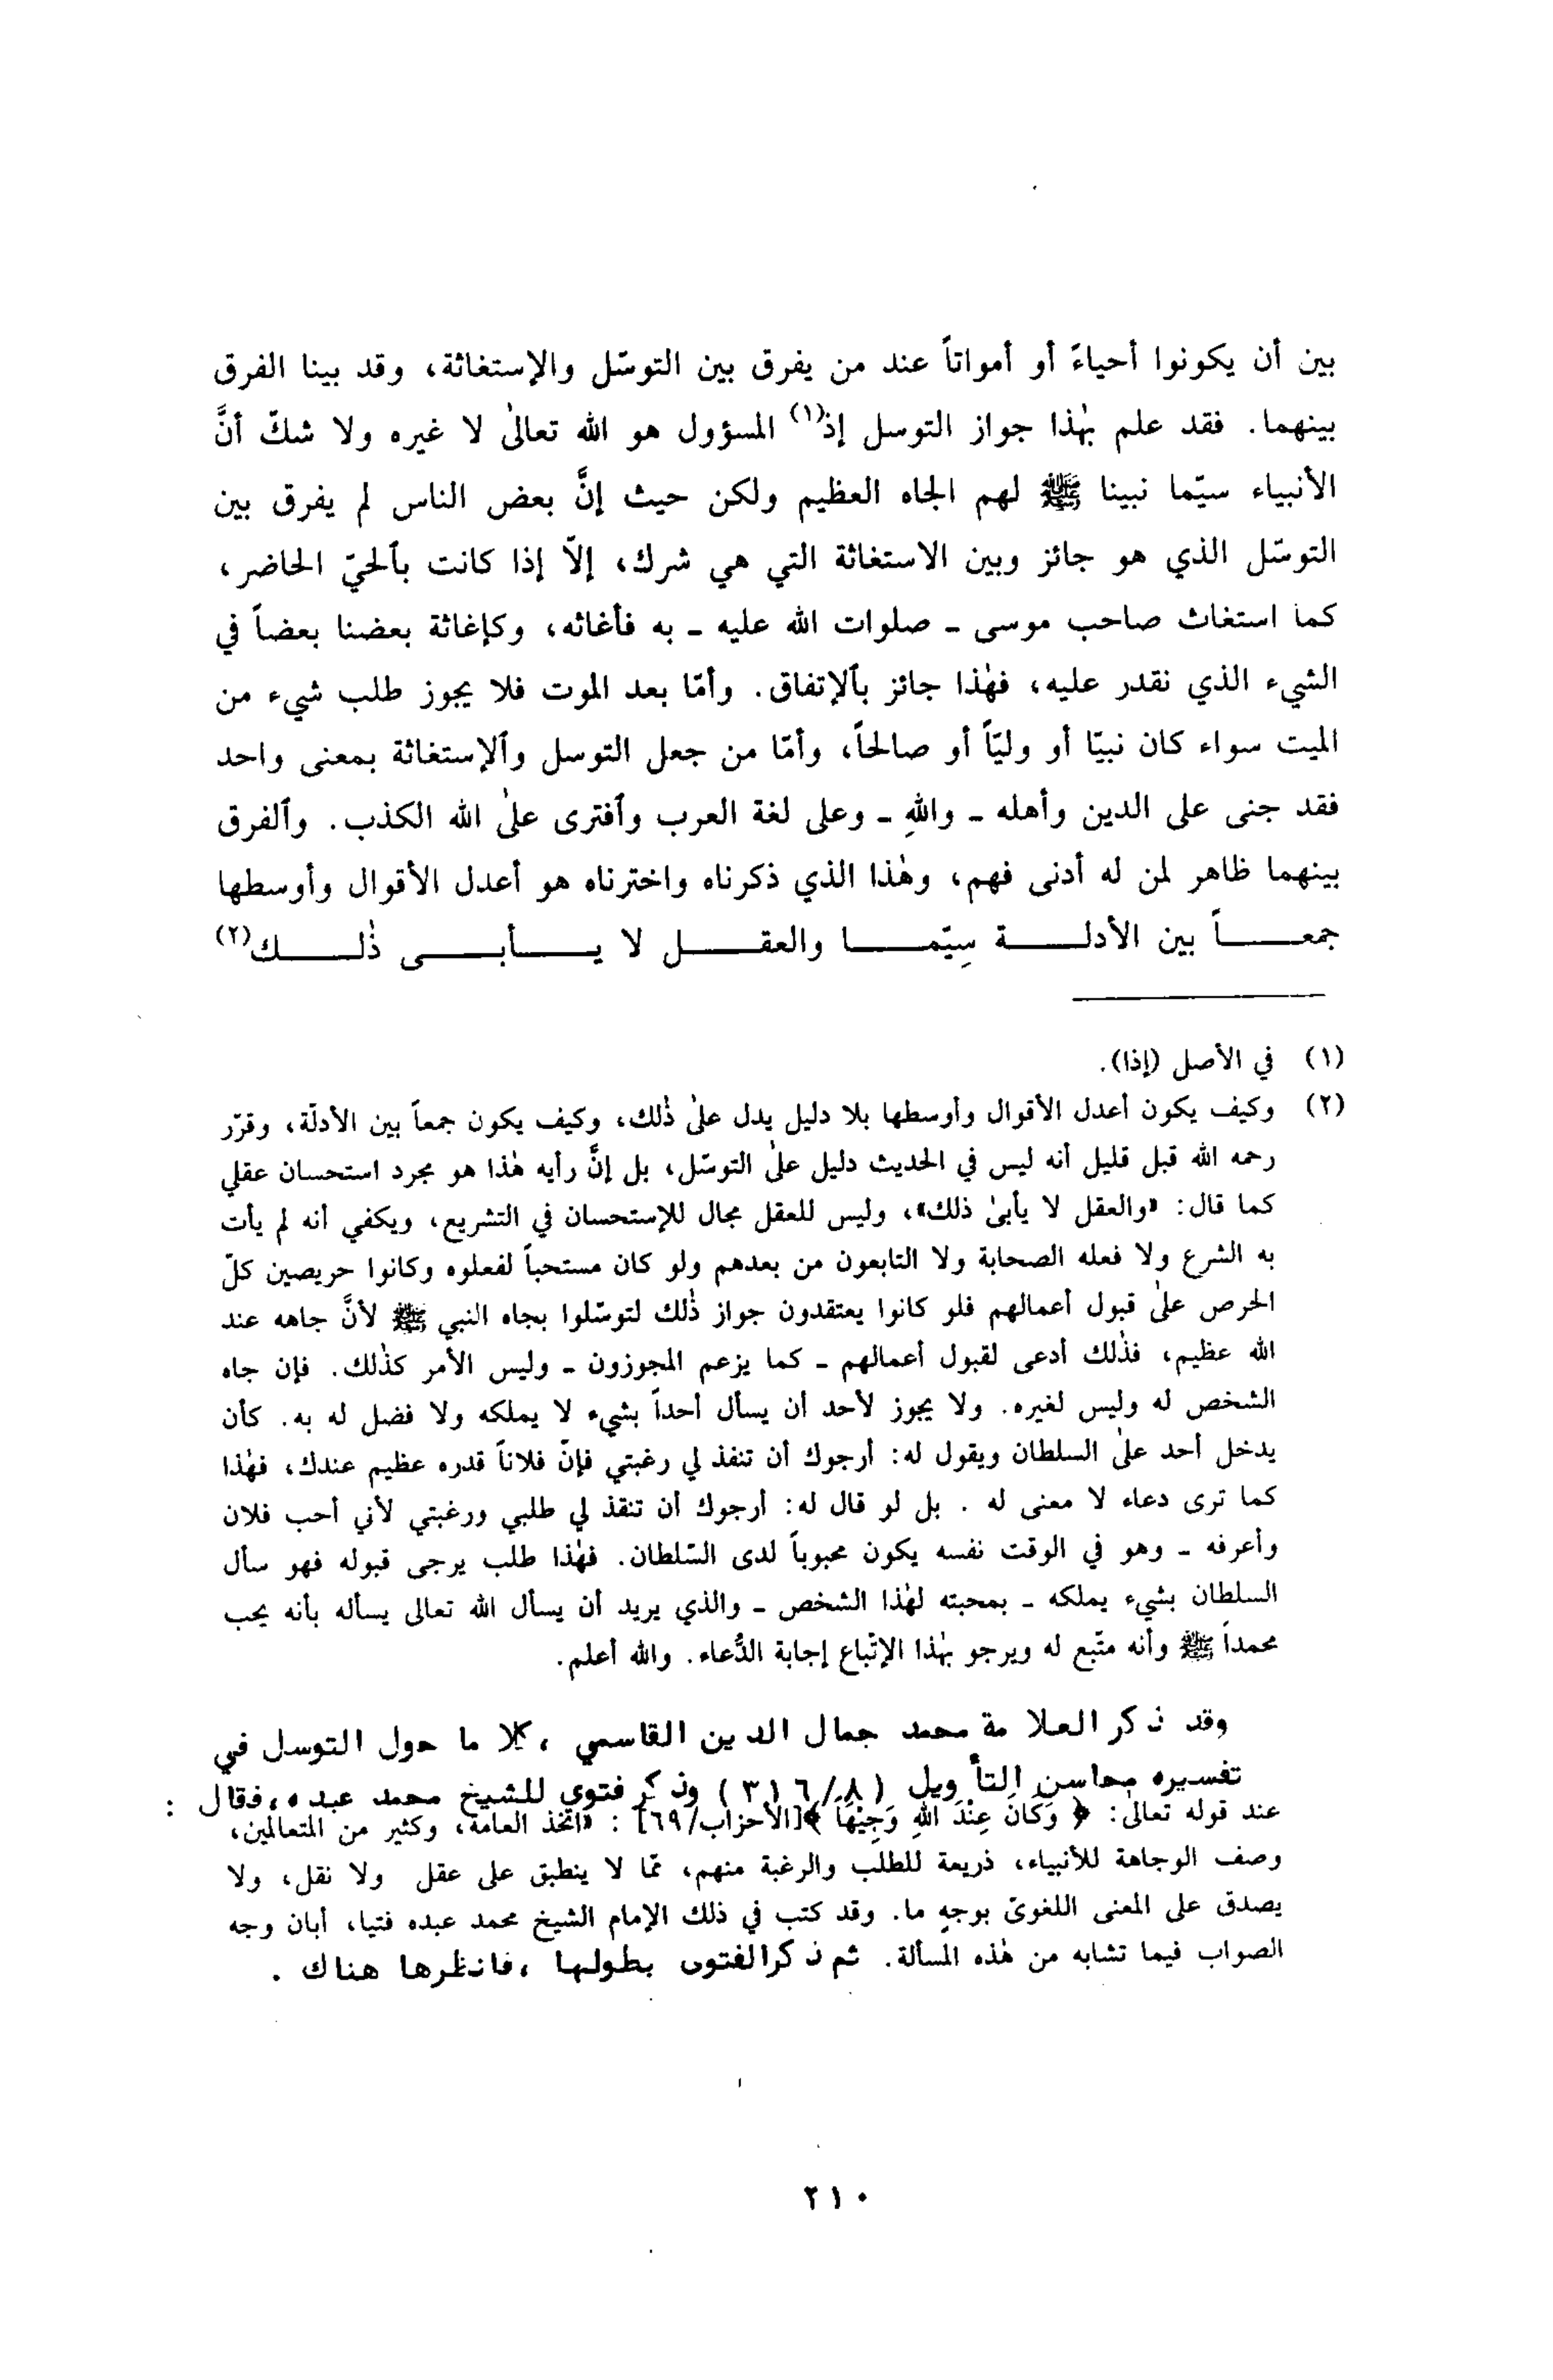 بين أن يكونوا أحياءً أو أمواتاً عند من يفرق بين التوسّل والإستغاثة، وقد بينا الفرق
بينهما. فقد علم بهٰذا جواز التوسل إذ(١) المسؤول هو الله تعالىٰ لا غيره ولا شكّ أنَّ
الأنبياء سيّما نبينا ﷺ لهم الجاه العظيم ولكن حيث إنَّ بعض الناس لم يفرق بين
التوسّل الذي هو جائز وبين الاستغاثة التي هي شرك، إلّا إذا كانت بٱلحيّ الحاضر،
كما استغاث صاحب موسى ـ صلوات الله عليه ـ به فأغاثه، وكإغاثة بعضنا بعضاً في
الشيء الذي نقدر عليه، فهٰذا جائز بٱلإتفاق. وأمّا بعد الموت فلا يجوز طلب شيء من
الميت سواء كان نبيّا أو وليّاً أو صالحاً، وأمّا من جعل التوسل وٱلإستغاثة بمعنى واحد
فقد جنى على الدين وأهله ـ واللهِ ـ وعلى لغة العرب وٱفترى علىٰ الله الكذب. وٱلفرق
بينهما ظاهر لمن له أدنى فهم، وهٰذا الذي ذكرناه واخترناه هو أعدل الأقوال وأوسطها
جمعـــاً بين الأدلـــة سِيّمـــا والعقـــل لا يـــأبـــى ذٰلـــك(٢)
(١) في الأصل (إذا).
(٢) وكيف يكون أعدل الأقوال وأوسطها بلا دليل يدل علىٰ ذٰلك، وكيف يكون جمعاً بين الأدلّة، وقرّر
رحمه الله قبل قليل أنه ليس في الحديث دليل علىٰ التوسّل، بل إنَّ رأيه هٰذا هو مجرد استحسان عقلي
كما قال: «والعقل لا يأبىٰ ذلك»، وليس للعقل مجال للإستحسان في التشريع، ويكفي أنه لم يأت
به الشرع ولا فعله الصحابة ولا التابعون من بعدهم ولو كان مستحباً لفعلوه وكانوا حريصين كلّ
الحرص علىٰ قبول أعمالهم فلو كانوا يعتقدون جواز ذٰلك لتوسّلوا بجاه النبي ﷺ لأنَّ جاهه عند
الله عظيم، فذٰلك أدعى لقبول أعمالهم ـ كما يزعم المجوزون ـ وليس الأمر كذٰلك. فإن جاه
الشخص له وليس لغيره. ولا يجوز لأحد أن يسأل أحداً بشيء لا يملكه ولا فضل له به. كأن
يدخل أحد علىٰ السلطان ويقول له: أرجوك أن تنفذ لي رغبتي فإنّ فلاناً قدره عظيم عندك، فهٰذا
كما ترى دعاء لا معنى له . بل لو قال له: أرجوك أن تنقذ لي طلبي ورغبتي لأني أحب فلان
وأعرفه ـ وهو في الوقت نفسه يكون محبوباً لدى السّلطان. فهٰذا طلب يرجى قبوله فهو سأل
السلطان بشيء يملكه ـ بمحبته لهٰذا الشخص ـ والذي يريد أن يسأل الله تعالى يسأله بأنه يحب
محمداً ﷺ وأنه متّبع له ويرجو بهٰذا الإتّباع إجابة الدُّعاء. والله أعلم.
وقد ذكر العلامة محمد جمال الدين القاسمي ، كلاما حول التوسل في
تفسيره محاسن التأويل (٣١٦/٨) وذكر فتوى للشيخ محمد عبده، فقال :
عند قوله تعالىٰ: ﴿ وَكَانَ عِنْدَ اللهِ وَجِيْهَاً ﴾[الأحزاب/٦٩] : «اتّخذ العامة، وكثير من المتعالمين،
وصف الوجاهة للأنبياء، ذريعة للطلب والرغبة منهم، ممّا لا ينطبق على عقل ولا نقل، ولا
يصدق على المعنى اللغويّ بوجهٍ ما. وقد كتب في ذلك الإمام الشيخ محمد عبده فتيا، أبان وجه
الصواب فيما تشابه من هٰذه المسألة. ثم ذكر الفتوى بطولها ، فانظرها هناك .
٢١٠